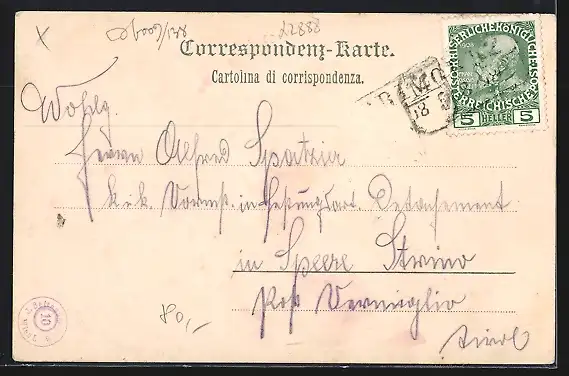 22888
Correspondenz-Karte.
Cartolina di corrispondenza.
1908
KAISERLICHE KÖNIGLICHE
ÖSTERREICHISCHE POST
5 HELLER 5
Wohlg.
Herrn Alfred Spatzier
k. k. Vormst. in Festungsart. Detachement
in Speere Strino
Post Vermiglio
Tirol
80,-
10